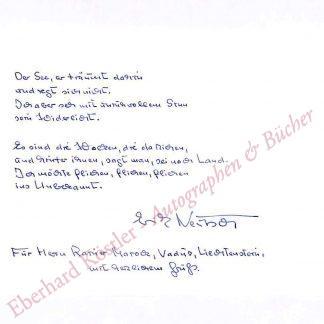 Der See, er träumt darin
und regt sich nicht.
Ich aber seh mit unruhvollem Sinn
sein Widerlicht.
Es sind die Wolken, die da ziehen,
und hinter ihnen, sagt man, sei noch Land.
Ich möchte fliehen, fliehen, fliehen
ins Unbekannt.
Für Herrn Rainer Marock, Vaduz, Liechtenstein,
mit herzlichem Gruß.
Eberhard Köstler - Autographen & Bücher